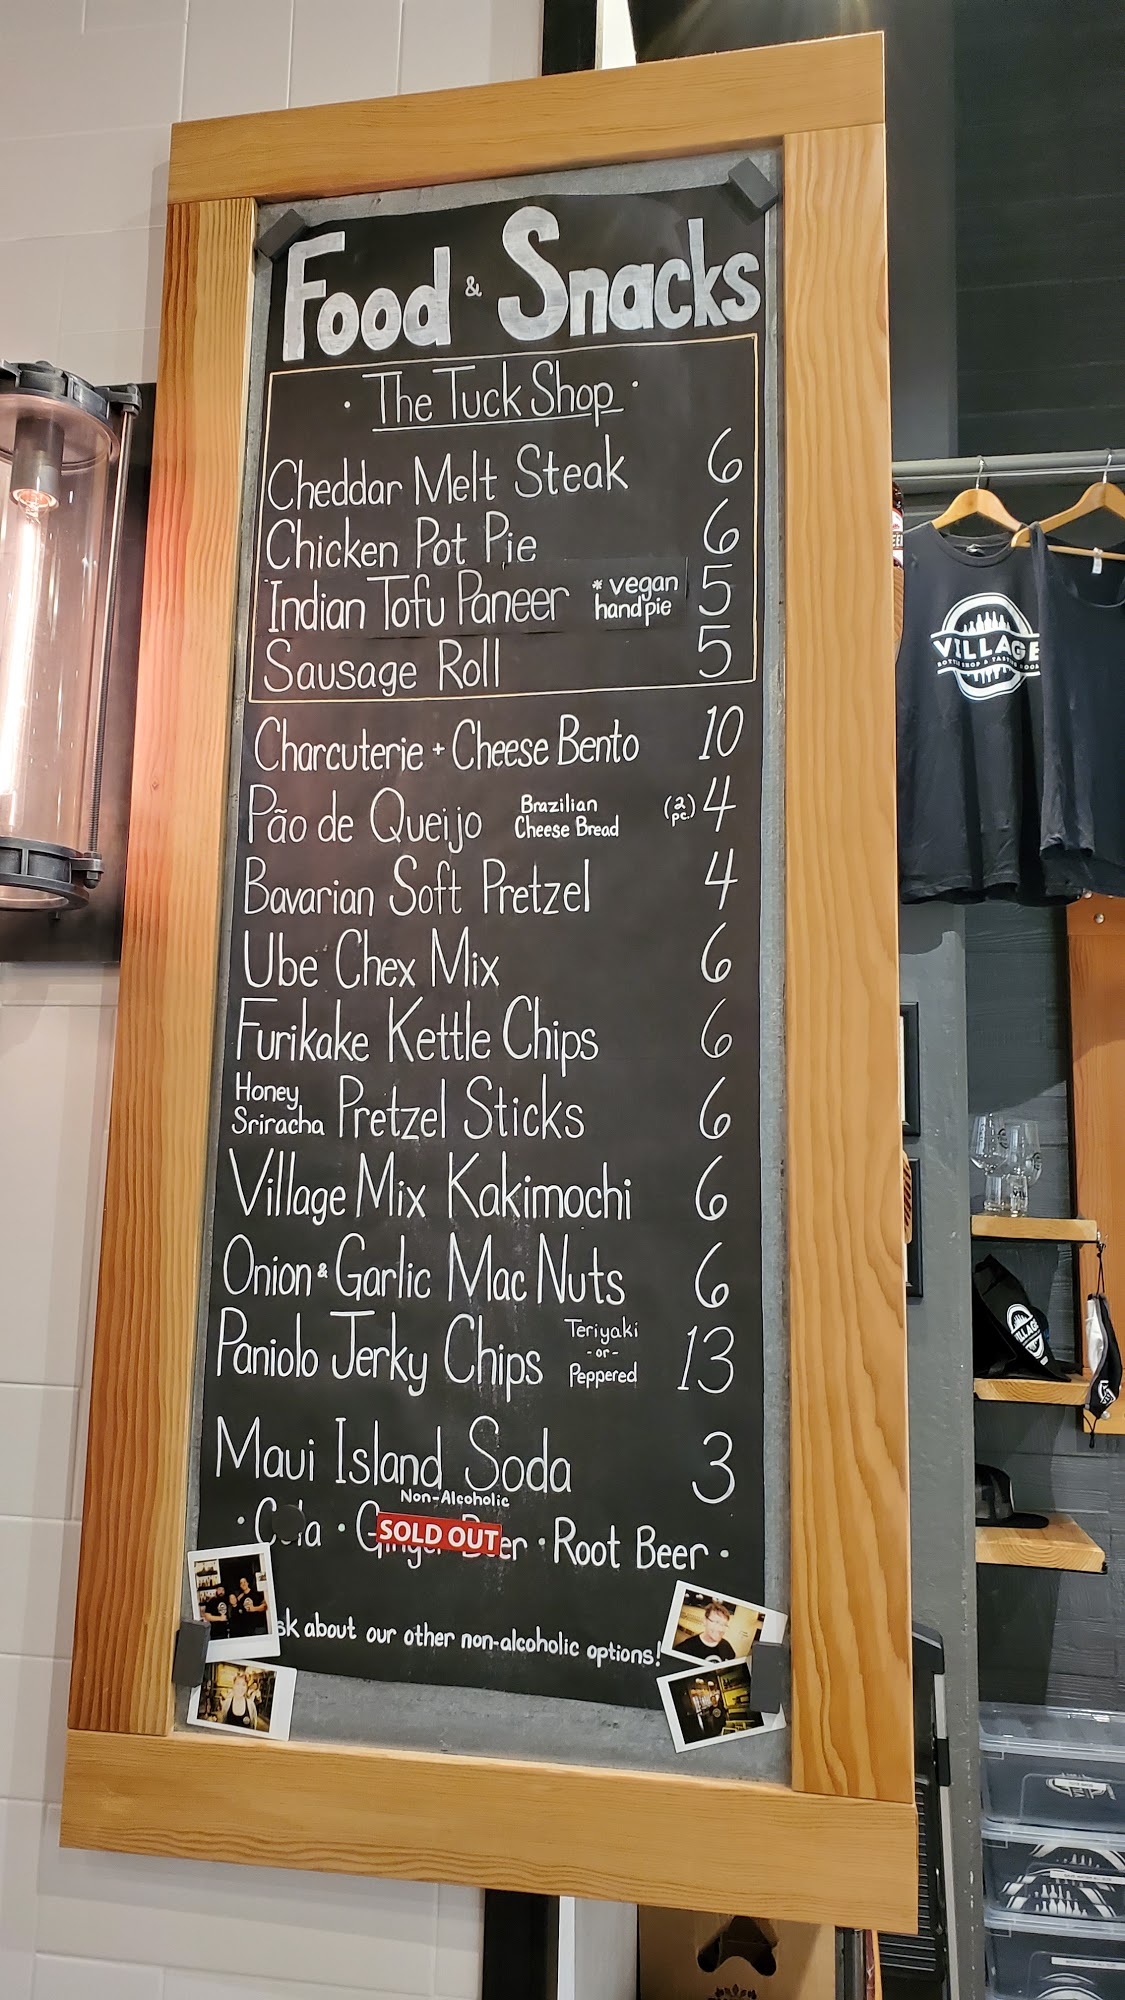 Food & Snacks
· The Tuck Shop ·
Cheddar Melt Steak 6
Chicken Pot Pie 6
Indian Tofu Paneer * vegan hand pie 5
Sausage Roll 5
Charcuterie + Cheese Bento 10
Pão de Queijo Brazilian Cheese Bread (2 pc.) 4
Bavarian Soft Pretzel 4
Ube Chex Mix 6
Furikake Kettle Chips 6
Honey Sriracha Pretzel Sticks 6
Village Mix Kakimochi 6
Onion & Garlic Mac Nuts 6
Paniolo Jerky Chips Teriyaki -or- Peppered 13
Maui Island Soda 3
Non-Alcoholic
· Cola · Ginger Beer · Root Beer ·
SOLD OUT
sk about our other non-alcoholic options!
VILLAGE
BOTTLE SHOP & TASTING ROOM
VILLAGE